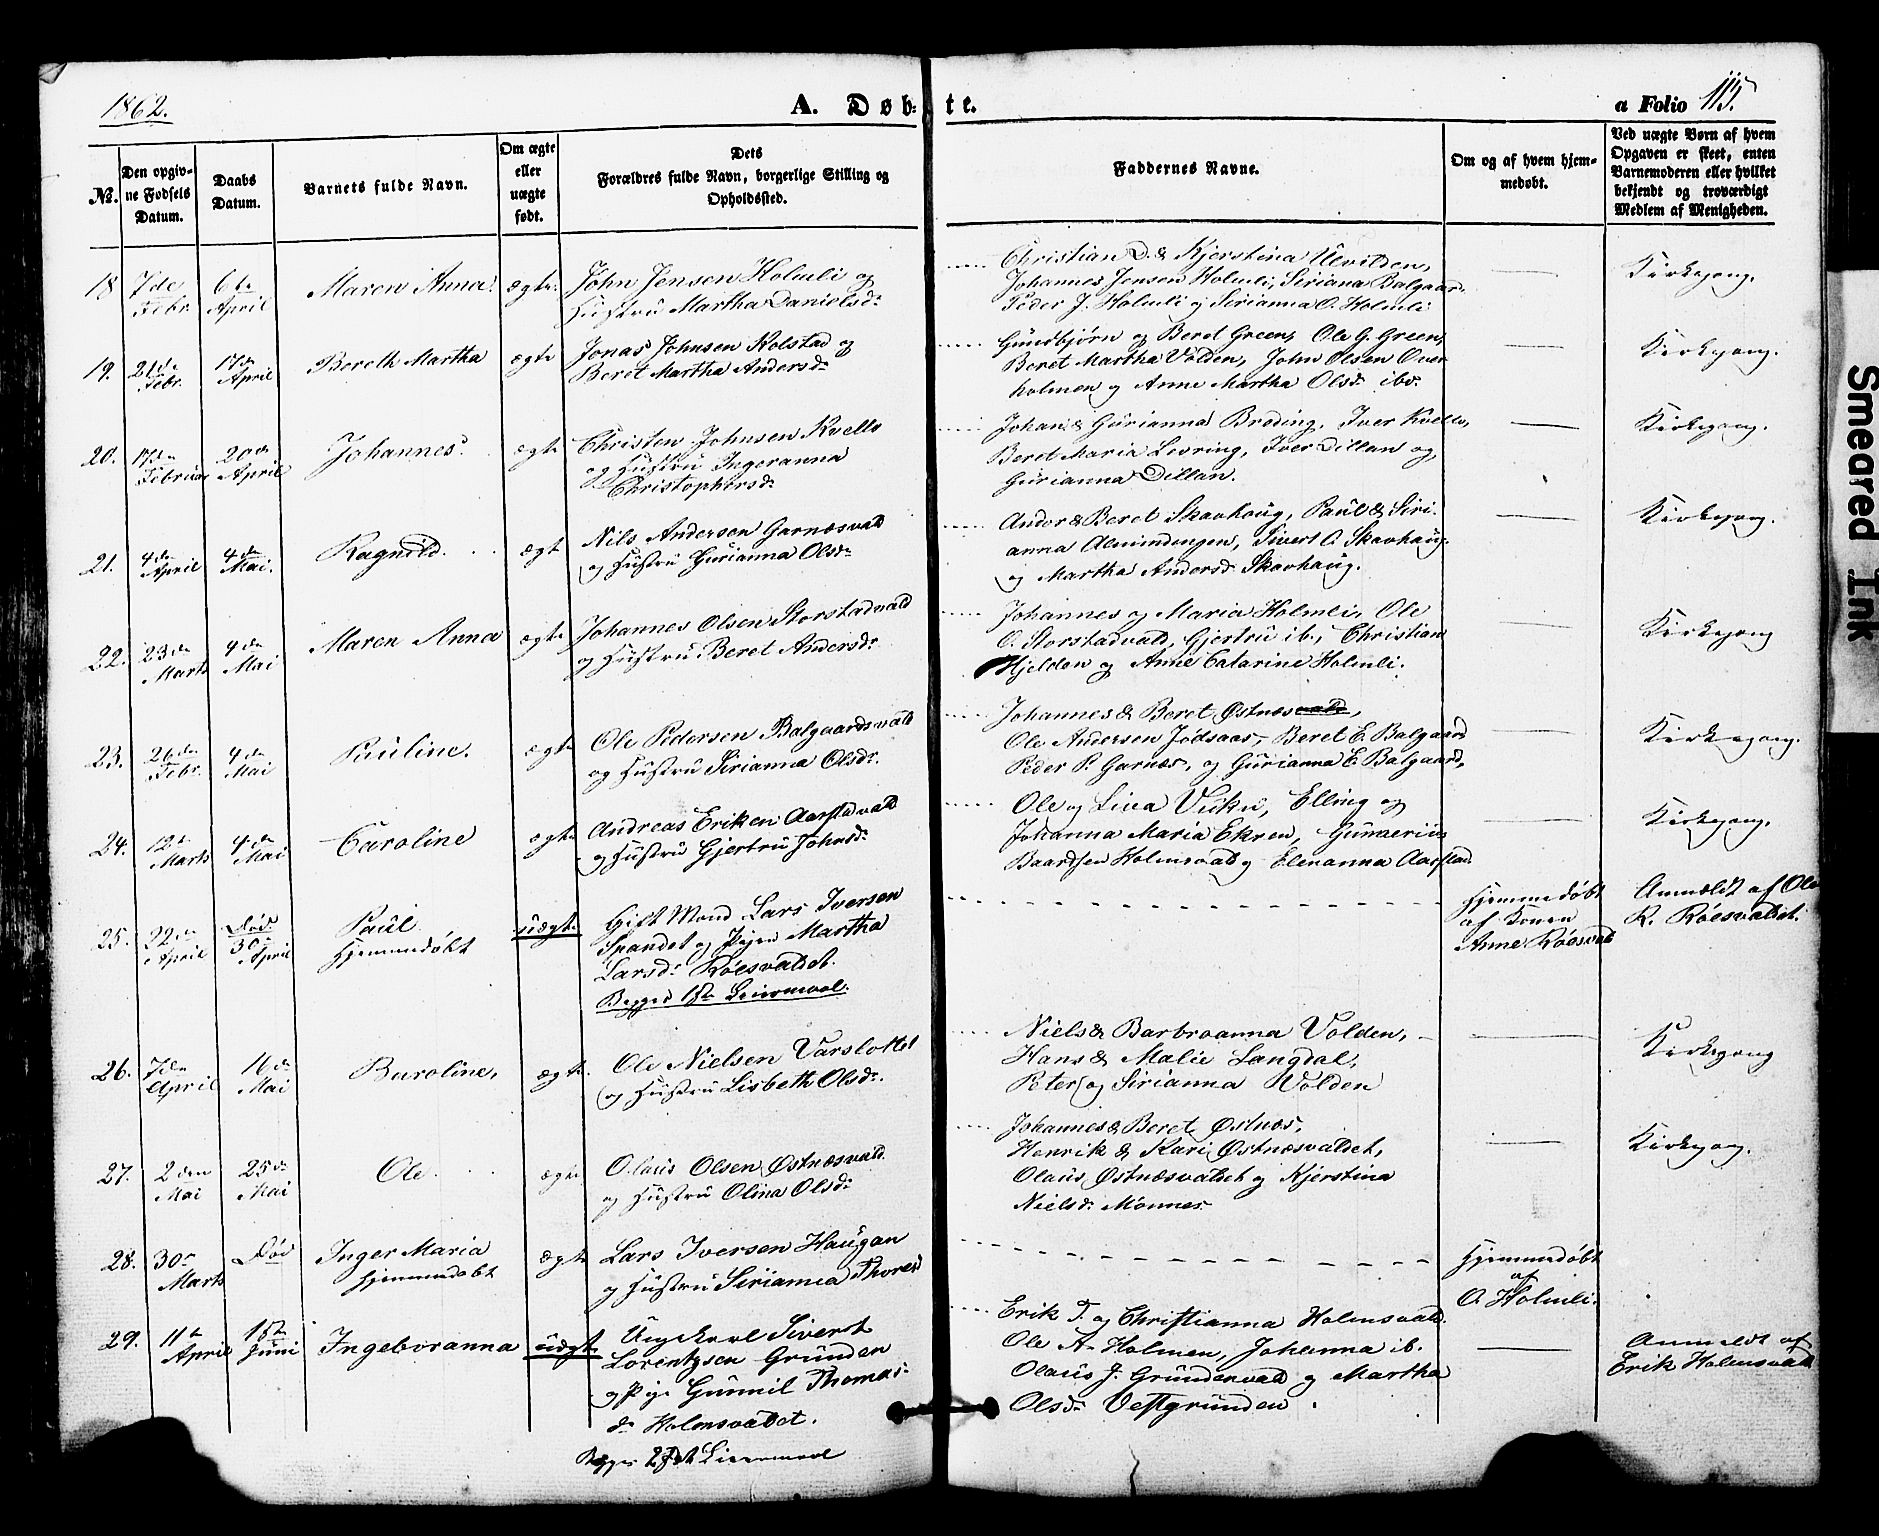 1862.
A. Døb-te.
a Folio 115.
No.
Den opgivne Fødsels Datum.
Daabs Datum.
Barnets fulde Navn.
Om ægte eller uægte født.
Dets Forældres fulde Navn, borgerlige Stilling og Opholdssted.
Faddernes Navne.
Om og af hvem hjemmedøbt.
Ved uægte Børn af hvem Opgaven er skeet, enten Barnemoderen eller hvilket bekjendt og troværdigt Medlem af Menigheden.
18 7de Febr. 6te April Maren Anna. ægte.
John Jensen Holmli og
Hustru Martha Danielsdr.
Christian D. & Kjerstina Ulvilden,
Johannes Jensen Holmli, Siriana Balgaard.
Peder J. Holmli og Sirianna O. Holmli
Kirkegang.
19. 21de Febr. 17de April Bereth Martha ægte
Jonas Johnsen Kolstad og
Beret Martha Andersdr.
Gundbjørn og Beret Green, Ole G. Green,
Beret Martha Volden, John Olsen Over
holmen og Anne Martha Olsdr. ibd.
Kirkegang.
20. 17de Februar 20de April Johannes. ægte
Christen Johnsen Kvello
og Hustru Ingeranna
Christophersdr.
Johan & Gurianna Breding, Iver Kvello,
Beret Maria Levring, Iver Dillan og
Gurianna Dillan.
Kirkegang.
21. 4de April 4de Mai. Ragnild. ægt
Nils Andersen Garnæsvald
og Hustru Gurianna Olsdr.
Andor & Beret Skavhaug, Paul & Siri-
anna Almindingen, Sivert O. Skavhaug
og Martha Andersdr. Skavhaug.
Kirkegang.
22. 23de Marts 4de Mai Maren Anna ægte
Johannes Olsen Storstadvald
og Hustru Beret Andersdr.
Johannes og Maria Holmli, Ole
O. Storstadvald, Gjertru ib., Christian
Hjelden og Anne Catarine Holmli.
Kirkegang
23. 26de Febr. 4de Mai Pauline. ægte
Ole Pedersen Balgaardsvald
og Hustru Sirianna Olsdr.
Johannes & Beret Østnæsvald,
Ole Andersen Jødsaas, Beret E. Balgaard
Peder P. Garnæs, og Gurianna E. Balgaard,
Kirkegang.
24. 12te Marts 4de Mai Caroline ægte
Andreas Eriksen Aarstadvald
og Hustru Gjertru Johnsdr.
Ole og Lina Veiken, Elling og
Johanna Maria Ekren, Gunnerius
Baardsen Holmsvald og Elenanna Aarstad.
Kirkegang.
25. 22de April Død 30te April Paul Hjemmedøbt uægte
Gift Mand Lars Iversen
Spandet og Pigen Martha
Larsdr. Röesvaldet.
Begges 1ste Leiermaal.
Hjemmedøbt
af Konen
Anne Röesvald
Anmeldt af Ole
K. Röesvaldet.
26. 7de April 16de Mai Buroline, ægte.
Ole Nielsen Varslottet
og Hustru Lisbeth Olsdr.
Niels & Barbroanna Volden,
Hans & Malie Langdal,
Peter og Sirianna Volden
Kirkegang
27. 2den Mai 25de Mai Ole. ægte
Olaus Olsen Østnæsvald
og Hustru Olina Olsdr.
Johannes & Beret Østnæs,
Henrik & Kari Østnæsvaldet,
Olaus Østnæsvaldet og Kjerstina
Nielsdr. Mönnes
Kirkegang.
28. 30te Marts Död Inger Maria Hjemmedøbt ægte
Lars Iversen Haugan
og Hustru Sirianna Thoresd
Hjemmedøbt
af
O. Holmli.
29. 11te April 1ste Juni Ingeboranna uægt
Ungkarl Sivert
Lorentzsen Grunden
og Pige Gunnil Thomas-
dr. Holmsvaldet.
Begges 2det Leiermaal
Erik T. og Christianna Holmsvald.
Ole A. Holmen, Johanna ib.
Olaus J. Grundenvald og Martha
Olsdr. Vestgrunden.
Anmeldt af
Erik Holmsvald
Smeared Ink